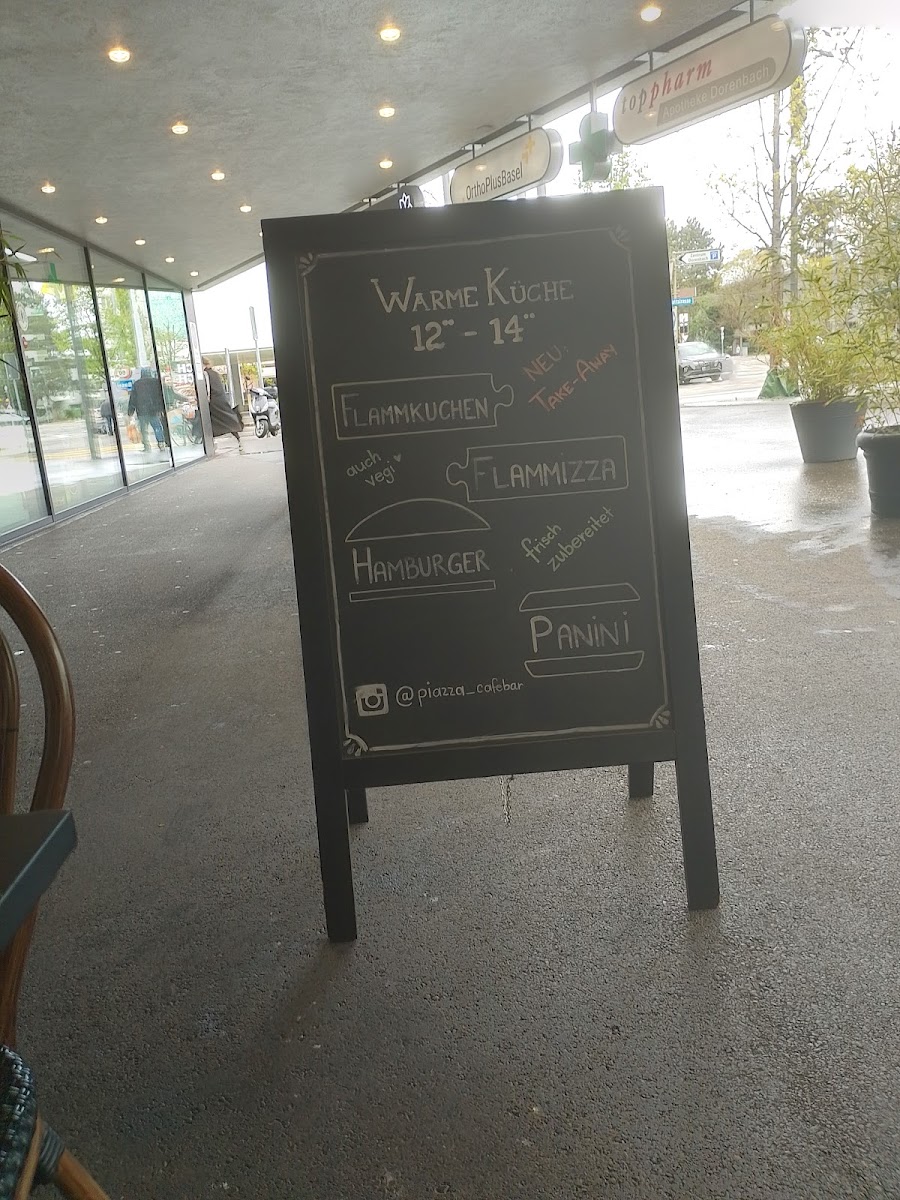 toppharm
Apotheke Dorenbach
OrthoPlusBasel
WARME KÜCHE
12°° - 14°°
NEU:
TAKE-AWAY
FLAMMKUCHEN
auch
vegi
FLAMMIZZA
HAMBURGER
frisch
zubereitet
PANINI
@piazza_cafebar